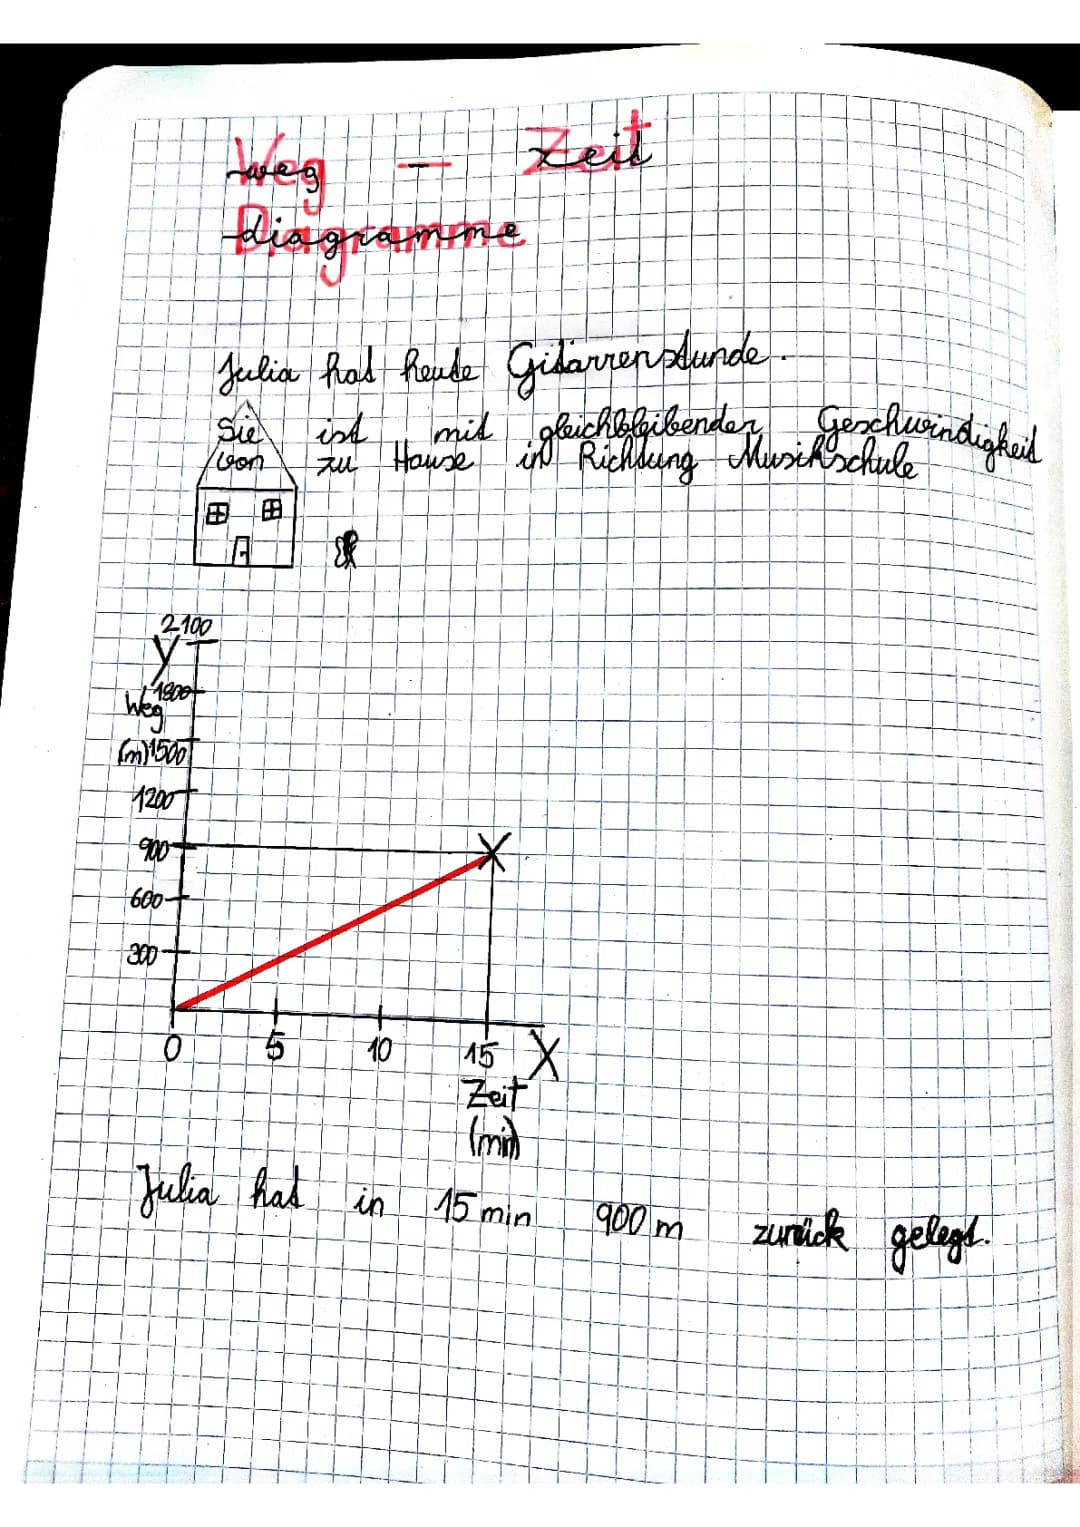 Weg – Zeit
Diagramme
Julia hat heute Gitarrenstunde.
Sie ist mit gleichbleibender Geschwindigkeit
von zu Hause in Richtung Musikschule
2100
y
1800
Weg
(m) 1500
1200
900
600
300
0 5 10 15 X
Zeit
(min)
Julia hat in 15 min 900 m zurück gelegt.